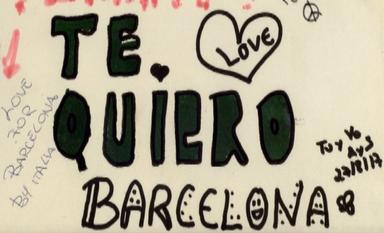 TE
LOVE
QUIERO
BARCELONA
LOVE
FOR
BARCELONA
BY ITALIA
TU Y YO
27/8/17